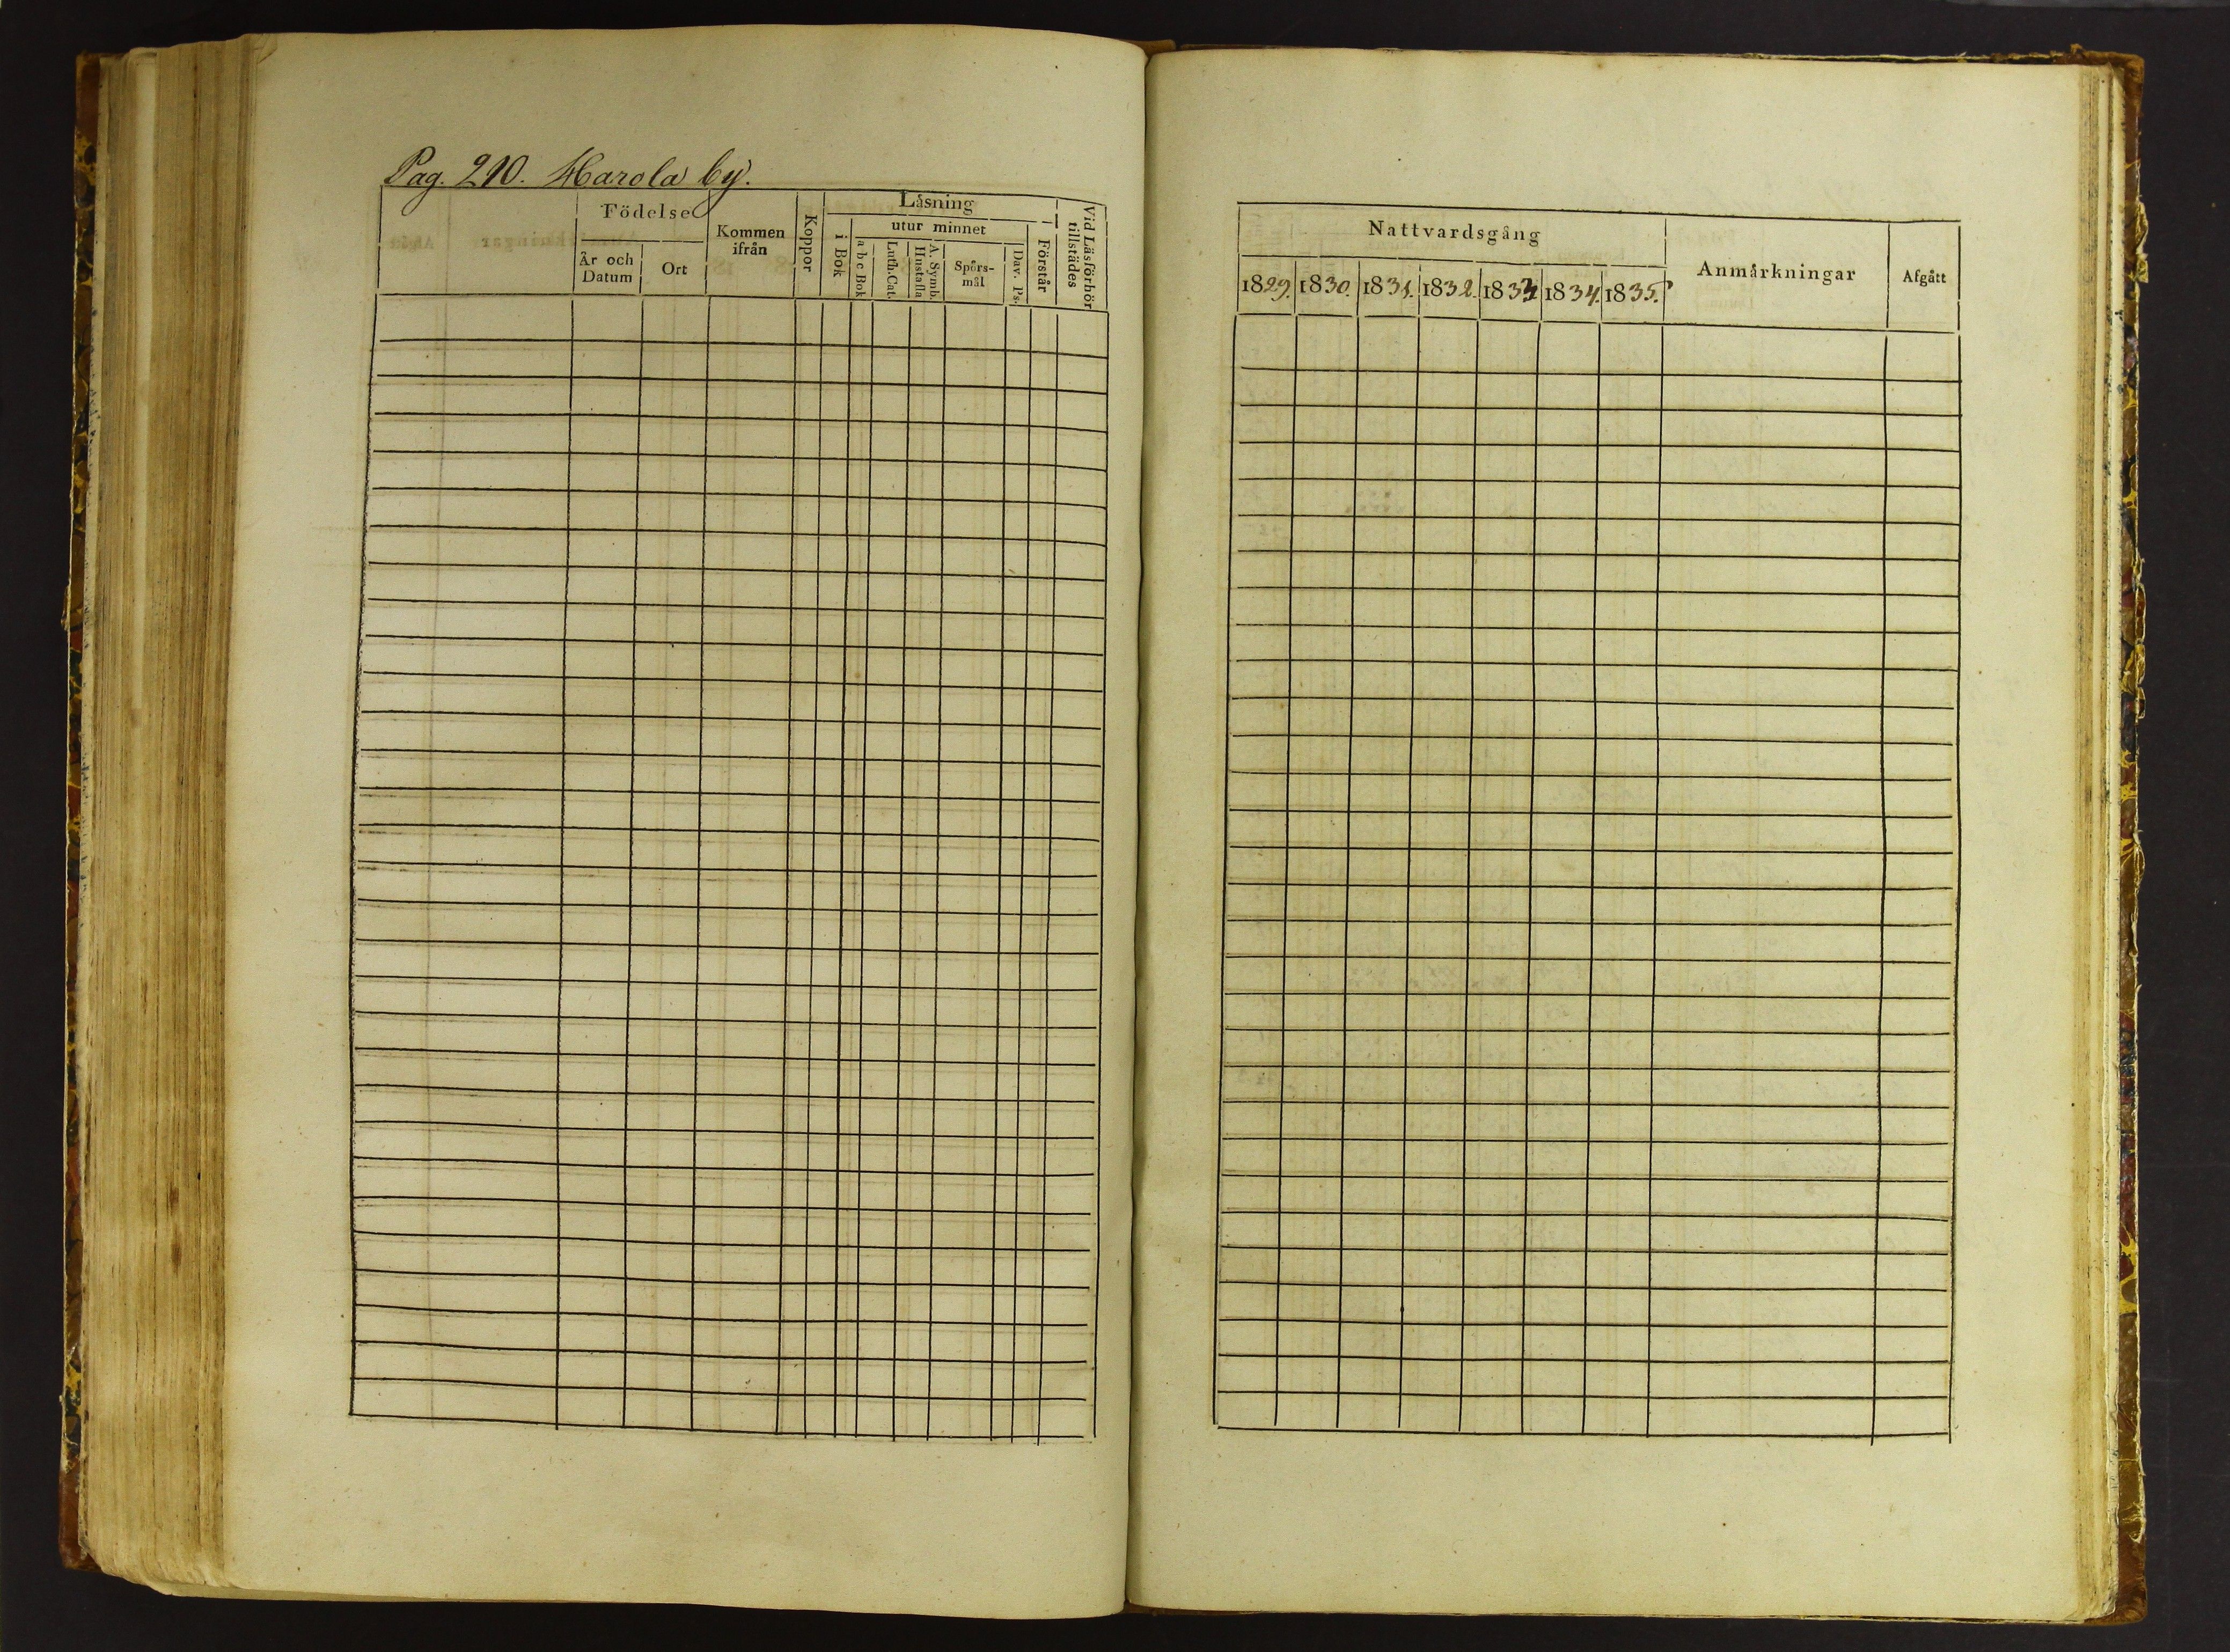 Pag. 210. Harola by.
Födelse
År och Datum
Ort
Kommen ifrån
Koppor
Läsning
i Bok
utur minnet
a b c Bok
Luth. Cat.
A. Symb. Hustafla
Spörs-mål
Dav. Ps.
Förstår
Vid Läsförhör tillstädes
Nattvardsgång
1829. 1830. 1831. 1832. 1833 1834. 1835.
Anmärkningar
Afgått